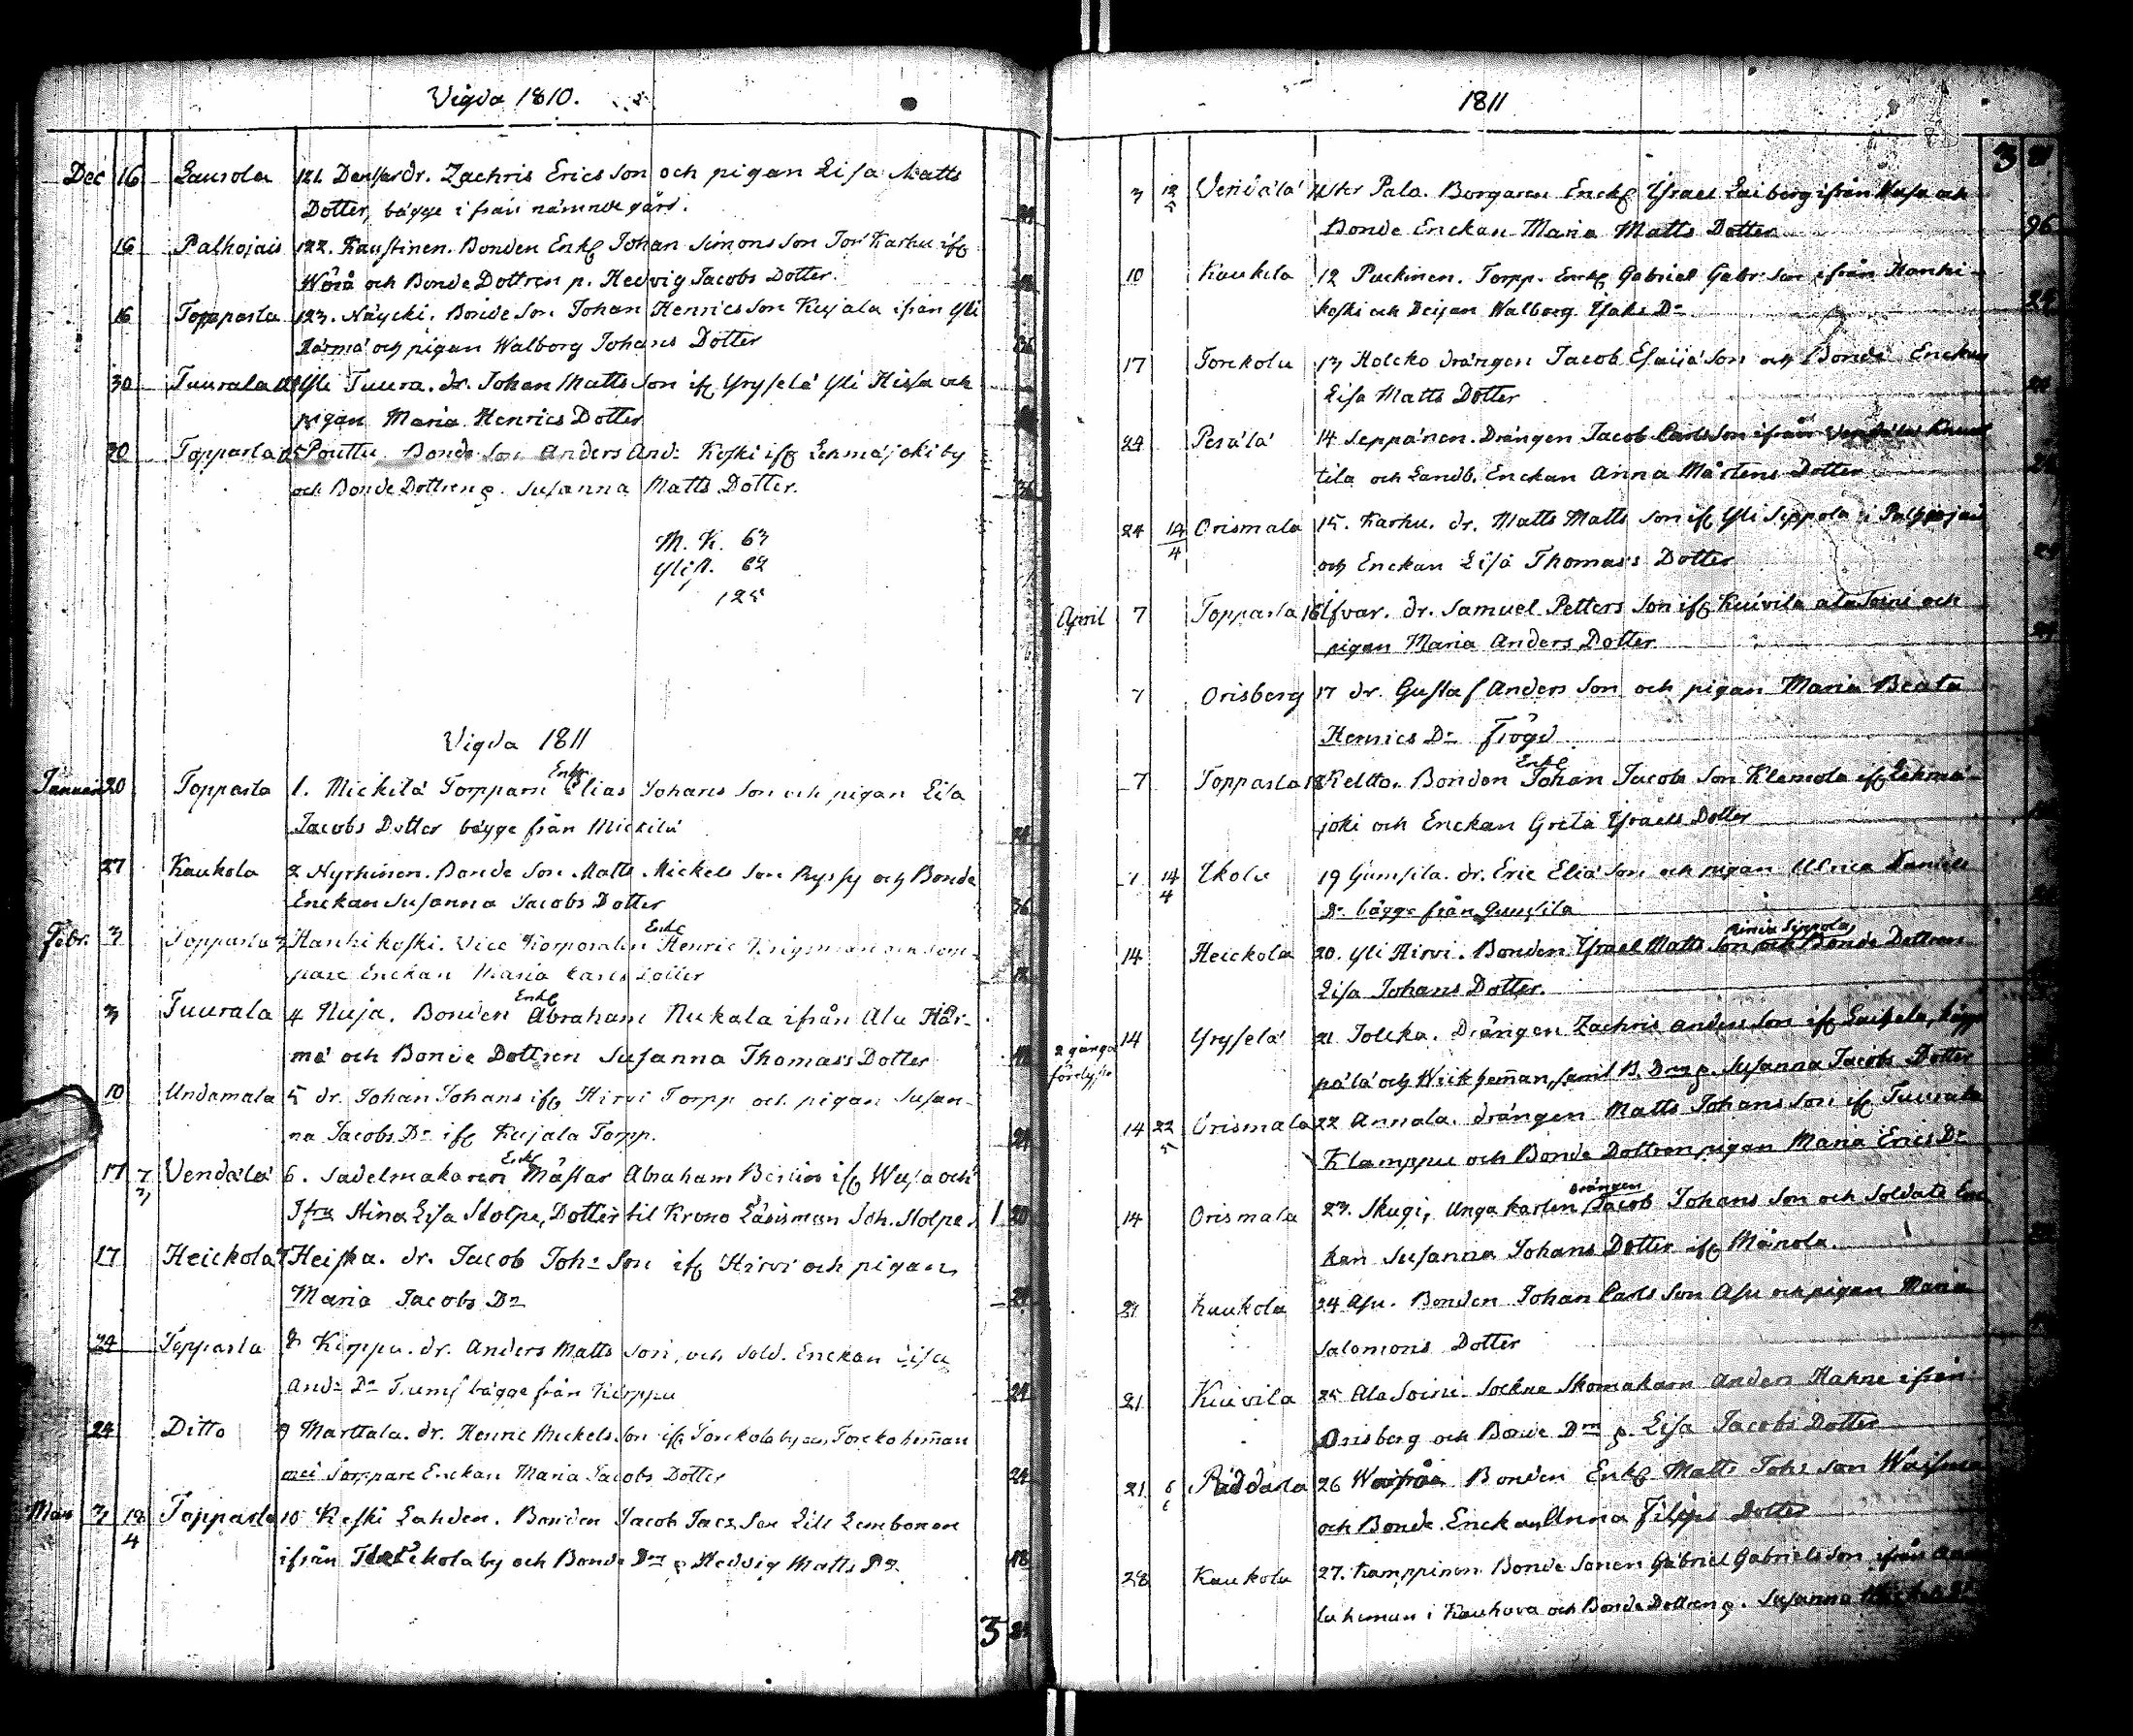 Vigda 1810.
Dec 16 Laurola 121. dr. Zachris Erics Son och pigan Lisa Matts
Dotter, bägge ifrån nämnde gård.
16 Palhojais 122. Kaustinen. Bonden Enkl Johan Simons Son Karhu ifr
Wörå och Bonde Dottren p. Hedvig Jacobs Dotter.
16 Topparla 123. Näycki. Bonde Son Johan Henrics Son Kujala ifrån Yli
Härmä och pigan Walborg Johans Dotter 36
30 Tuurala Yli Tuura. dr. Johan Matts Son ifr Yrysselä Yli Hissa och
pigan Maria Henrics Dotter
30 Topparla 125 Pouttu Bonde Son Anders And: Koski ifr Lehmäjoki by
och Bonde Dottren p. Susanna Matts Dotter. 36
M. K. 63
Ylis. 62
125
Vigda 1811
Januari 20 Topparla 1. Mickilä Torparn Enkl Elias Johans Son och pigan Lisa
Jacobs Dotter bägge från Mickilä 24
27 Kaukola 2 Nyrhinen. Bonde Son Matts Mickels Son Ryssy och Bonde
Enckan Susanna Jacobs Dotter 36
Febr. 3 Topparla 3 Hanhikoski. Vice Korporalen Enkl Henric
pare Enckan Maria Carls Dotter
3 Tuurala 4 Nuja. Bonden Enkl Abraham Nukala ifrån Ala Här-
mä och Bonde Dottren Susanna Thomass Dotter
10 Undamala 5 dr. Johan Johans ifr Hirvi Torpp och pigan Susan-
na Jacobs Dr ifr Kujala Torpp. 24
17 7/3 Vendälä 6. Sadelmakaren Enkl Mästar Abraham ifr Wasa och
Jfru Stina Lisa Stolpe, Dotter til Krono Länsman Joh. Stolpe 1 20
17 Heickola 7 Heiska. dr. Jacob Joh: Son ifr Hirvi och pigan
Maria Jacobs Dr 24
24 Topparla 8 Kimppu. dr. Anders Matts Son, och Sold. Enckan Lisa
And: Dr Trumf bägge från Kimppu 24
24 Ditto 9 Marttala. dr. Henric Mickels Son ifr Torckola by och Torcko heman
med Torppare Enckan Maria Jacobs Dotter 24
Mars 3 12/4 Topparla 10 Koski Lahden. Bonden Jacob Jacs Son Lill
ifrån by och Bonde Dr p Hedvig Matts Dr 48
3 24
1811
3 24
3 12/5 Vendälä Pala. Borgaren Enckl Israel ifrån Wasa och
Bonde Enckan Maria Matts Dotter 96
10 Kaukola 12 Puckinen. Torpp. Enkl Gabriel Gabr: Son ifrån Hanhi-
koski och Deijan Walborg Isaks Dr 24
17 Torckola 13 Holcko drängen Jacob Esaiiä Son och Bonde Enckan
Lisa Matts Dotter 24
24 Peräla 14 Seppänen. Drängen Jacob Carls Son ifrån
tila och Landb. Enckan Anna Mårtens Dotter 24
24 14/4 Orismala 15. Karhu. dr. Matts Matts Son ifr Yli Seppola i Palhojais
och Enckan Lisa Thomass Dotter 24
April 7 Topparla 16 Ifvar. dr. Samuel Petters Son ifr Kuivila ala Soini och
pigan Maria Anders Dotter
7 Orisberg 17 dr. Gustaf Anders Son och pigan Maria Beata
Henrics Dr Frögd
7 Topparla 18 Keltto. Bonden Enkl Johan Jacobs Son Klemola ifr Lehmä-
joki och Enckan Greta Israels Dotter
7 14/4 Ikola 19 Gumsila. dr. Eric Eliä Son och pigan Ulrica Daniels
Dr bägge från Gumsila
14 Heickola 20. Yli Hirvi. Bonden Israel Matts Son och Bonde Dottren
Lisa Johans Dotter.
2 gånga förelyste 14 Yrysselä 21 Jolcka. Drängen Zachris Anders Son ifr
pälä och heman, samt B. Drn p. Susanna Jacobs Dotter
14 22/5 Orismala 22 Annala. drängen Matts Johans Son ifr Tuurala
Klamppu och Bonde Dottren pigan Maria Erics Dr
14 Orismala 23. Skugi, unga karlen drängen Jacob Johans Son och Soldats En-
kan Susanna Johans Dotter ifr Mänola.
21 Kaukola 24 Asu. Bonden Johan Carls Son Asu och pigan Maria
Salomons Dotter
21 Kuivila 25 Ala Soini. Sockne Skomakarn Anders Hahne ifrån
Orisberg och Bonde Drn p. Lisa Jacobs Dotter
21 6/6 26 Bonden Enkl Matts Joh: Son
och Bonde Enckan Anna Filips Dotter
28 Kaukola 27. Kamppinen Bonde Sonen Gabriel Gabriels Son ifrån
la heman i Kauhava och Bonde Dottren p. Susanna